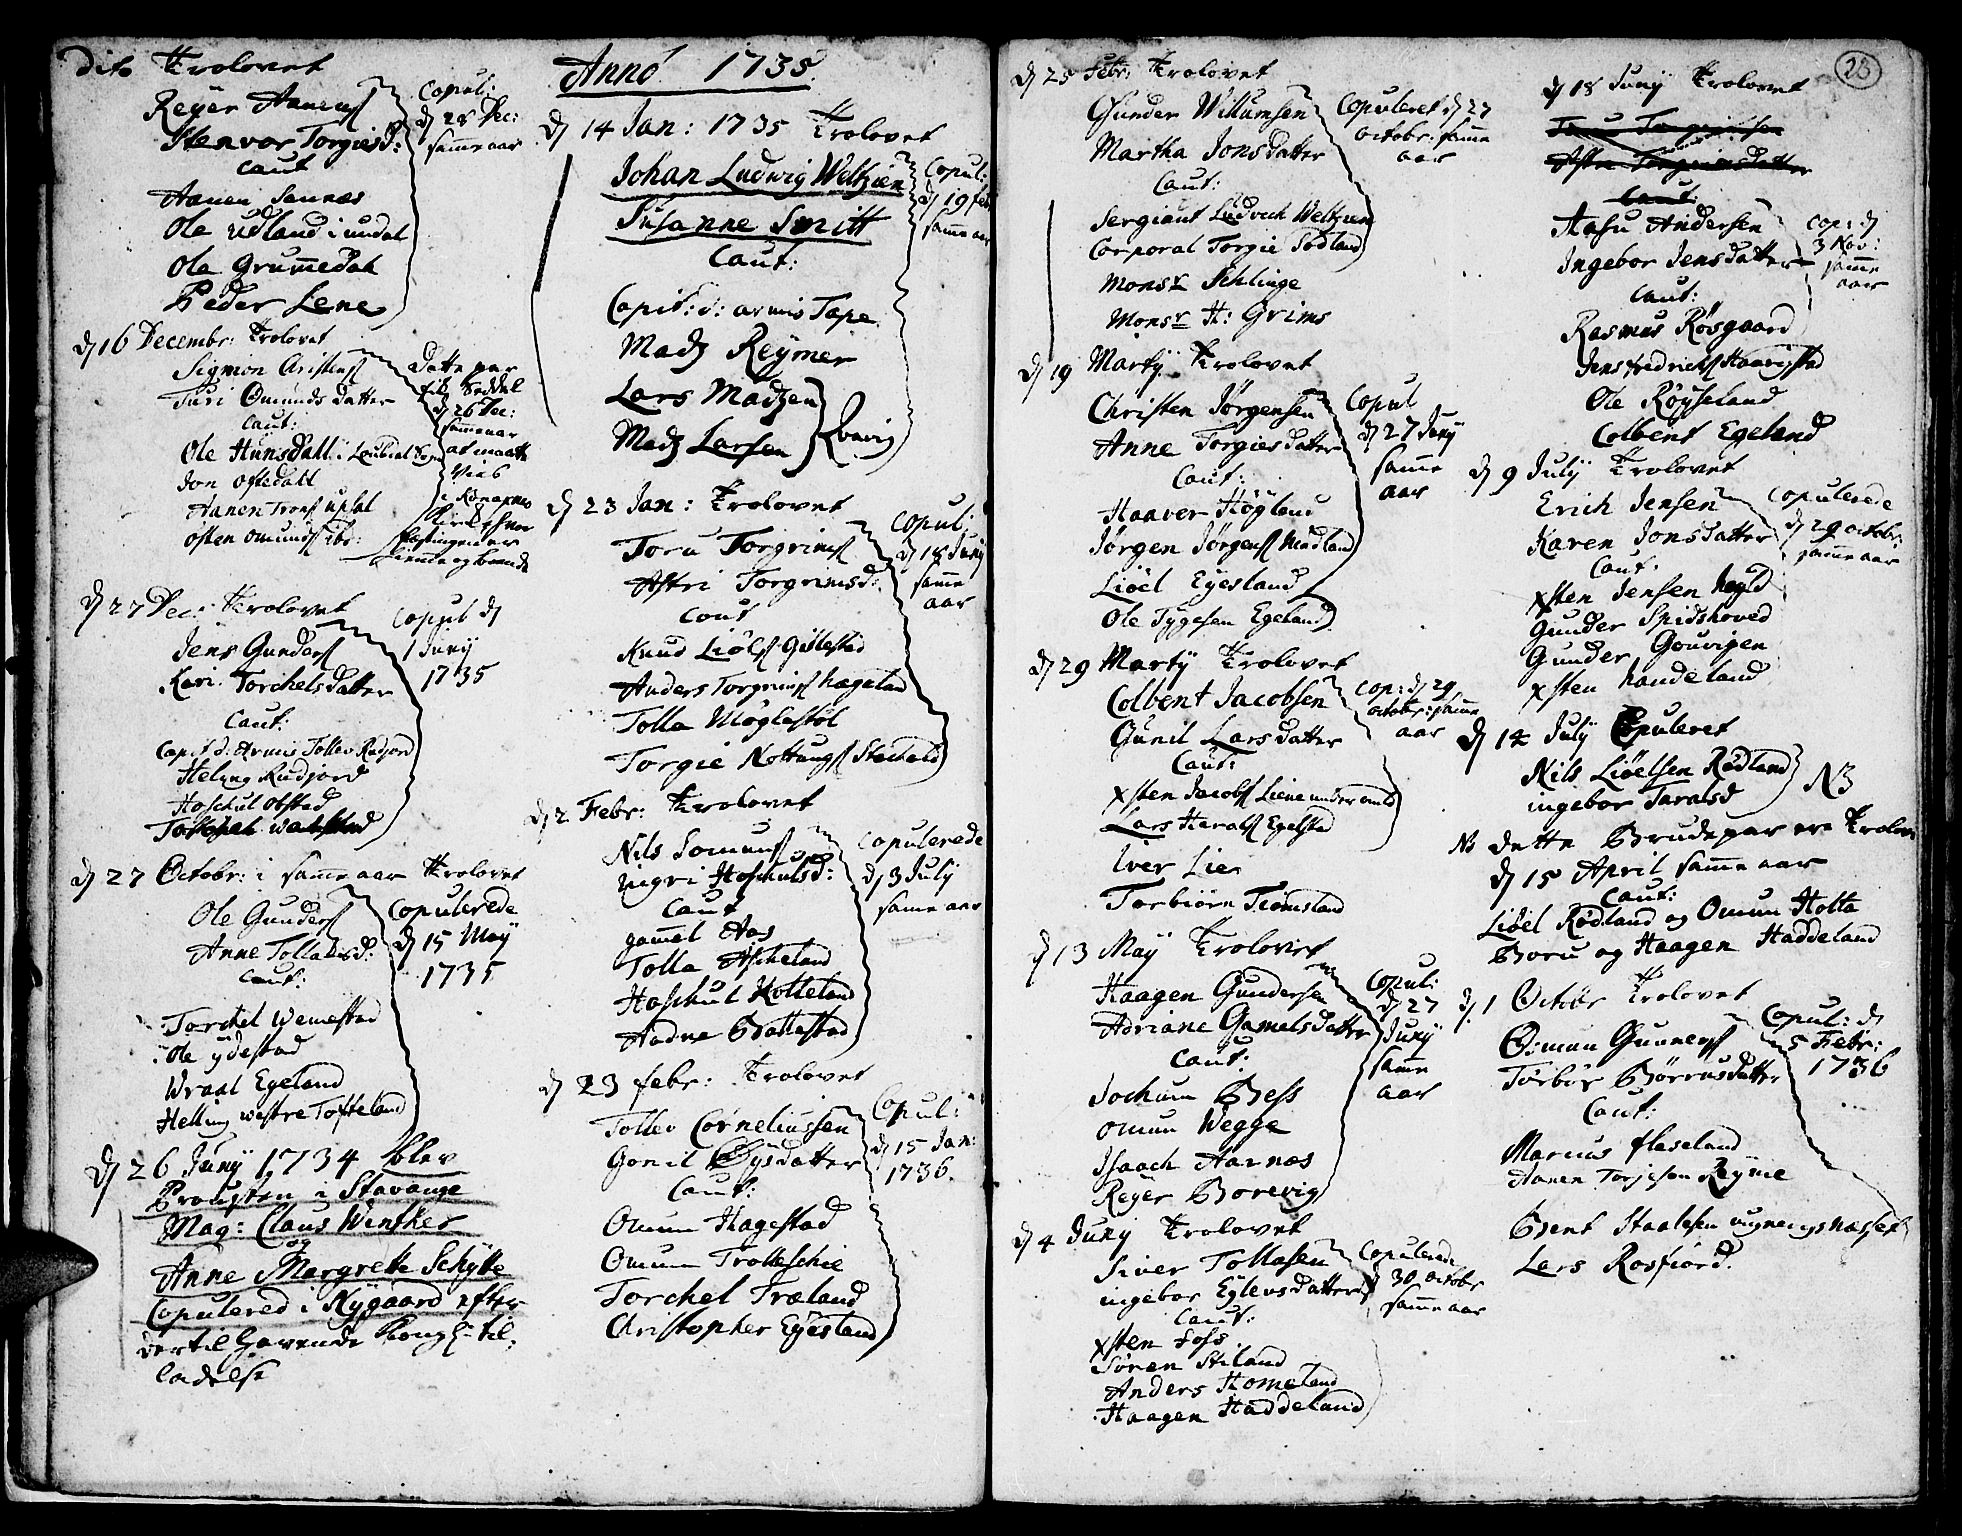 Dito Trolovet
Reyer Aanens
Stenvor Torgiesd:
Caut
Aanen Sannæs
Ole Udland i undal
Ole Grummedal
Peder Lene
Copul:
d 28 Dec:
samme aar
d 16 Decembr: Trolovet
Sigmon Christens
Turi Omunds datter
Caut:
Ole Hunsdall i
Jon Oftedall
Aanen Trons upsal
østen omunds ibd:
Dette par
til Seddel
d 26 Dec:
samme aar
at maatte
vies
Kirche
d 27 Dec: Trolovet
Jens Gunders
Kari Torchelsdatter
Caut:
Capit d: Armis Tollev Rudjord
Helgng Rudjord
Hoschul obstad
Copul d
1 Juny
1735
d 27 Octobr: i samme aar Trolovet
Ole Gunders
Anne Tollaksd:
Caut:
Torchel Wemestad
Ole ydestad
Wraal Egeland
Helling westre Tofteland
Copulerede
d 15 May
1735
d 26 Juny 1734 blev
Prousten i Stavange
Mag: Claus Winther
og
Anne Margrette Schytte
Copulered i Nygaard efter
dertil havende Kongl: til:
ladelse
Anno 1735
d 14 Jan: 1735 Trolovet
Johan Ludwig Weltzien
Susanne Smitt
Caut:
Capit: d: armis Tape
Madz Reymer
Lars Madzen
Madz Larsen
Rvavig
Copul:
d 19 feb
samme aar
d 23 Jan: Trolovet
Toru Torgrims
Astri Torgrimsd:
Cout
Knud Liøls Gislestad
Anders Torgrims hægeland
Tolla Møglestøl
Torgie Nottungs Stecheld
Copul:
d 18 Juny
samme
aar
d 2 Febr: Trolovet
Nils Somuns
Sigri Hoschulsd:
Caut
gamel Aas
Tolla Ascheland
Hoschul Holteland
Aadne Battestad
Copulerede
d 3 July
same aar
d 23 febr: Trolovet
Tollev Corneliussen
Gonil Øysdatter
Caut:
Omun Hagestad
Omun Trolleschie
Torchel Fræland
Christopher Eyesland
Copul:
d 15 Jan:
1736
d 25 Febr: Trolovet
Gunder Willumsen
Martha Jonsdatter
Caut:
Sergiant Ludvich Weltzien
Corporal Torgie Sodland
Monsr Schlinge
Monsr H: Grims
Copuleret d 27
octobr: samme
aar
d 19 Marty Trolovet
Christen Jørgensen
Anne Torgiesdatter
Caut:
Haaver Høyland
Jørgen Jørgens Madland
Liøel Eyesland
Ole Tygesen Egeland
Copul
d 27 Juny
samme
aar
d 29 Marty Trolovet
Colbent Jacobsen
Gunil Larsdatter
Caut:
xsten Jacobs Liene under omb
Lars Harals Egelstad
Iver Lie
Torbiørn Tiomsland
Cop: d 29
octobr: samme
aar
d 13 May Trolovet
Haagen Gundersen
Adriane Gamelsdatter
Caut:
Jochum Bess
omun Wegge
Isaach Aarnæs
Reyer Borevig
Copul:
d 27
Juny
samme
aar
d 4 Juny Trolovet
Siver Tollasen
ingebor Eylevsdatter
Caut:
xsten Foss
Sören Stiland
Anders Homeland
Haagen Haddeland
Copulerede
d 30 octobr
samme aar
28
d 18 Juny Trolovet
Toru Torgrimsen
Astri Torgrimsdatter
Caut:
Aasu Andersen
Ingebor Jensdatter
Caut:
Rasmus Røsgaard
Jens fredrichs Haarigstad
Ole Røyseland
Colbent Egeland
Cop: d
3 Nov:
samme
aar
d 9 July Trolovet
Erich Jensen
Karen Jonsdatter
Caut:
xsten Jensen
Gunder Spidshoved
Gunder Gouvigen
xsten haudeland
Copulerede
d 29 octobr:
samme aar
d 14 July Copuleret
Nils Liøelsen Rødland
ingebor Taralsd
NB
NB dette Brudepar ere Trolov
d 15 April samme aar
Caut:
Liøel Rødland og Omun Holta
Boru og Haagen Haddeland
d 1 Octobr Trolovet
Osmun Gunners
Torbor Børrusdatter
Caut:
Marcus flaseland
Aanen Torjesen Reyme
Bent Staalesen
Lars Rosfiord
Copul: d
5 Febr:
1736